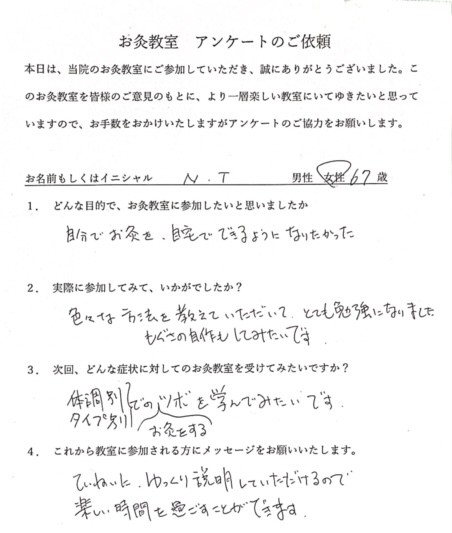 お灸教室　アンケートのご依頼
本日は、当院のお灸教室にご参加していただき、誠にありがとうございました。こ
のお灸教室を皆様のご意見のもとに、より一層楽しい教室にいてゆきたいと思って
いますので、お手数をおかけいたしますがアンケートのご協力をお願いします。
お名前もしくはイニシャル　N.T　男性　女性　67歳
1．どんな目的で、お灸教室に参加したいと思いましたか
自分でお灸を、自宅でできるようになりたかった
2．実際に参加してみて、いかがでしたか？
色々な方法を教えていただいて、とても勉強になりました
もぐさの自作もしてみたいです
3．次回、どんな症状に対してのお灸教室を受けてみたいですか？
体調別
タイプ別
でのツボを学んでみたいです．
お灸をする
4．これから教室に参加される方にメッセージをお願いいたします。
ていねいに、ゆっくり説明していただけるので
楽しい時間を過ごすことができます．